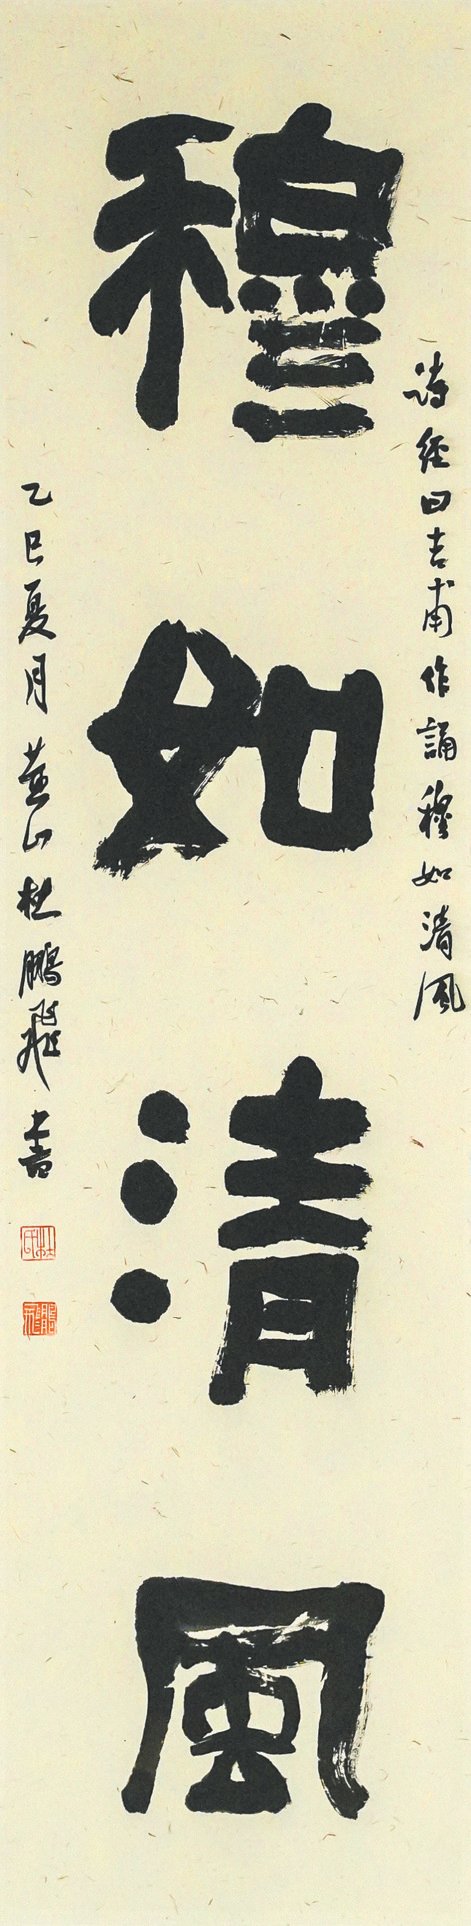 詩經曰吉甫作誦穆如清風
穆如清風
乙巳夏月黃山杜鵬飛書
杜氏